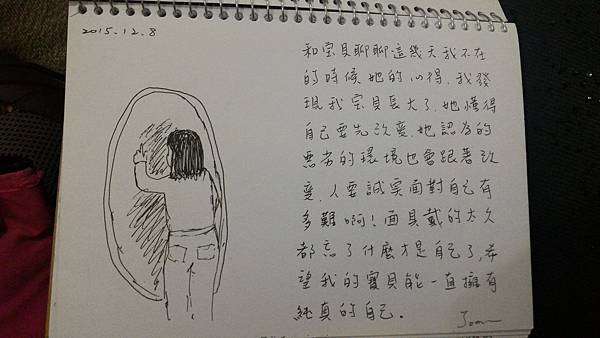 2015.12.8
和宝貝聊聊這幾天我不在
的時候她的心得,我發
現我宝貝長大了,她懂得
自己要先改變,她認為的
惡劣的環境也會跟著改
變,人要誠實面對自己有
多難啊!面具戴的太久
都忘了什麼才是自己了,希
望我的寶貝能一直擁有
純真的自己.
Joan